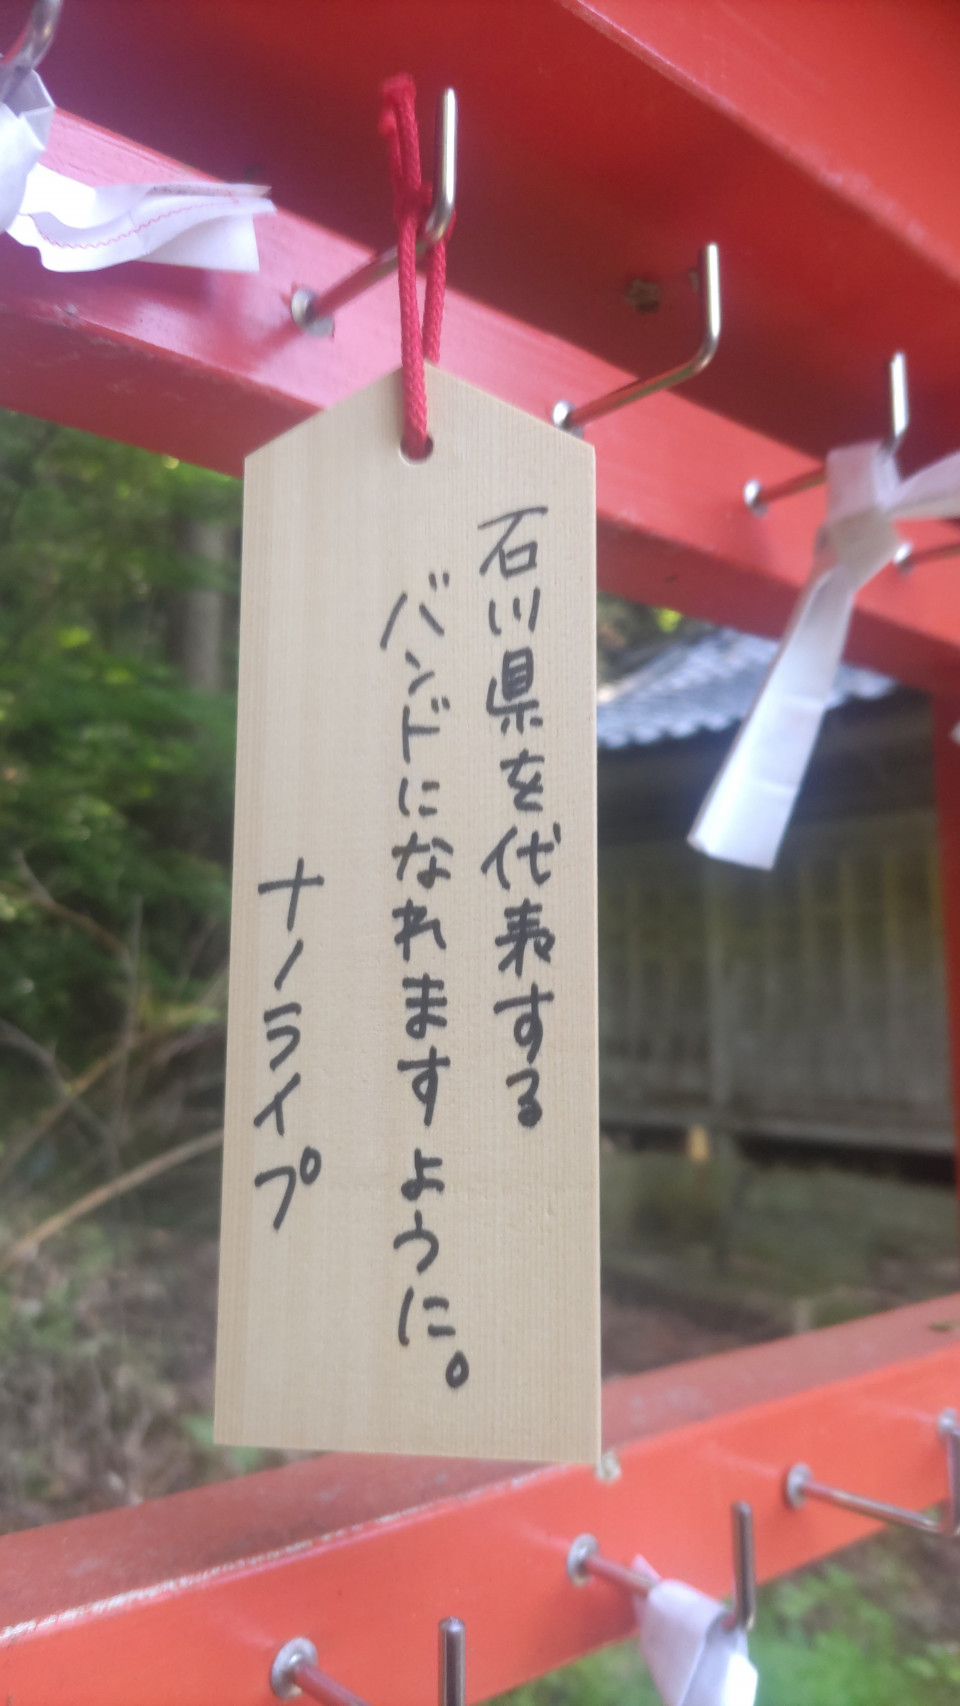 石川県を代表する
バンドになれますように。
ナノライプ